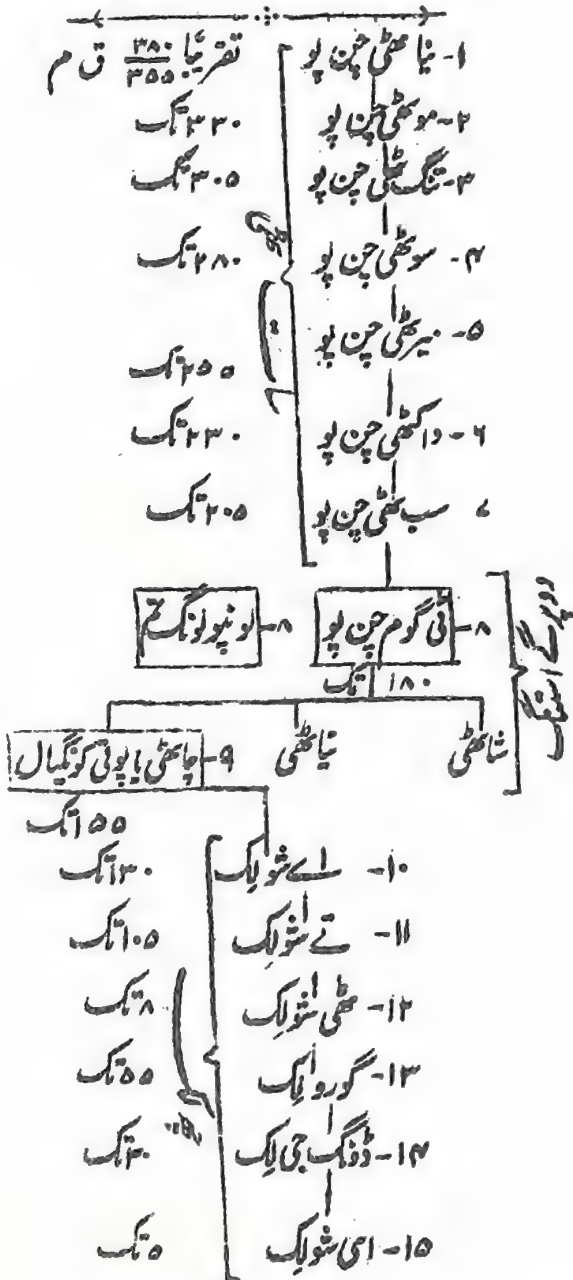 ۱- نیا ٹھی چن پو تقریباً ۳۸۰/۳۵۵ ق م
۲- مو ٹھی چن پو ۳۳۰ تک
۳- تنگ ٹھی چن پو ۳۰۵ تک
۴- سو ٹھی چن پو ۲۸۰ تک
۵- میر ٹھی چن پو ۲۵۵ تک
۶- داکٹھی چن پو ۲۳۰ تک
۷ سب ٹھی چن پو ۲۰۵ تک
۸- ٹی گوم چن پو ۸- لونپو لونگ تم
۱۸۰ تک
شاٹھی نیاٹھی ۹- چاٹھی یا پوتی کونگیال
۱۵۵ تک
۱۰- اے شولِک ۱۳۰ تک
۱۱- تے شولِک ۱۰۵ تک
۱۲- ٹھی شولِک ۸۰ تک
۱۳- گورو لِک ۵۵ تک
۱۴- ڈونگ جی لِک ۳۰ تک
۱۵- اسی شولِک ۵ تک